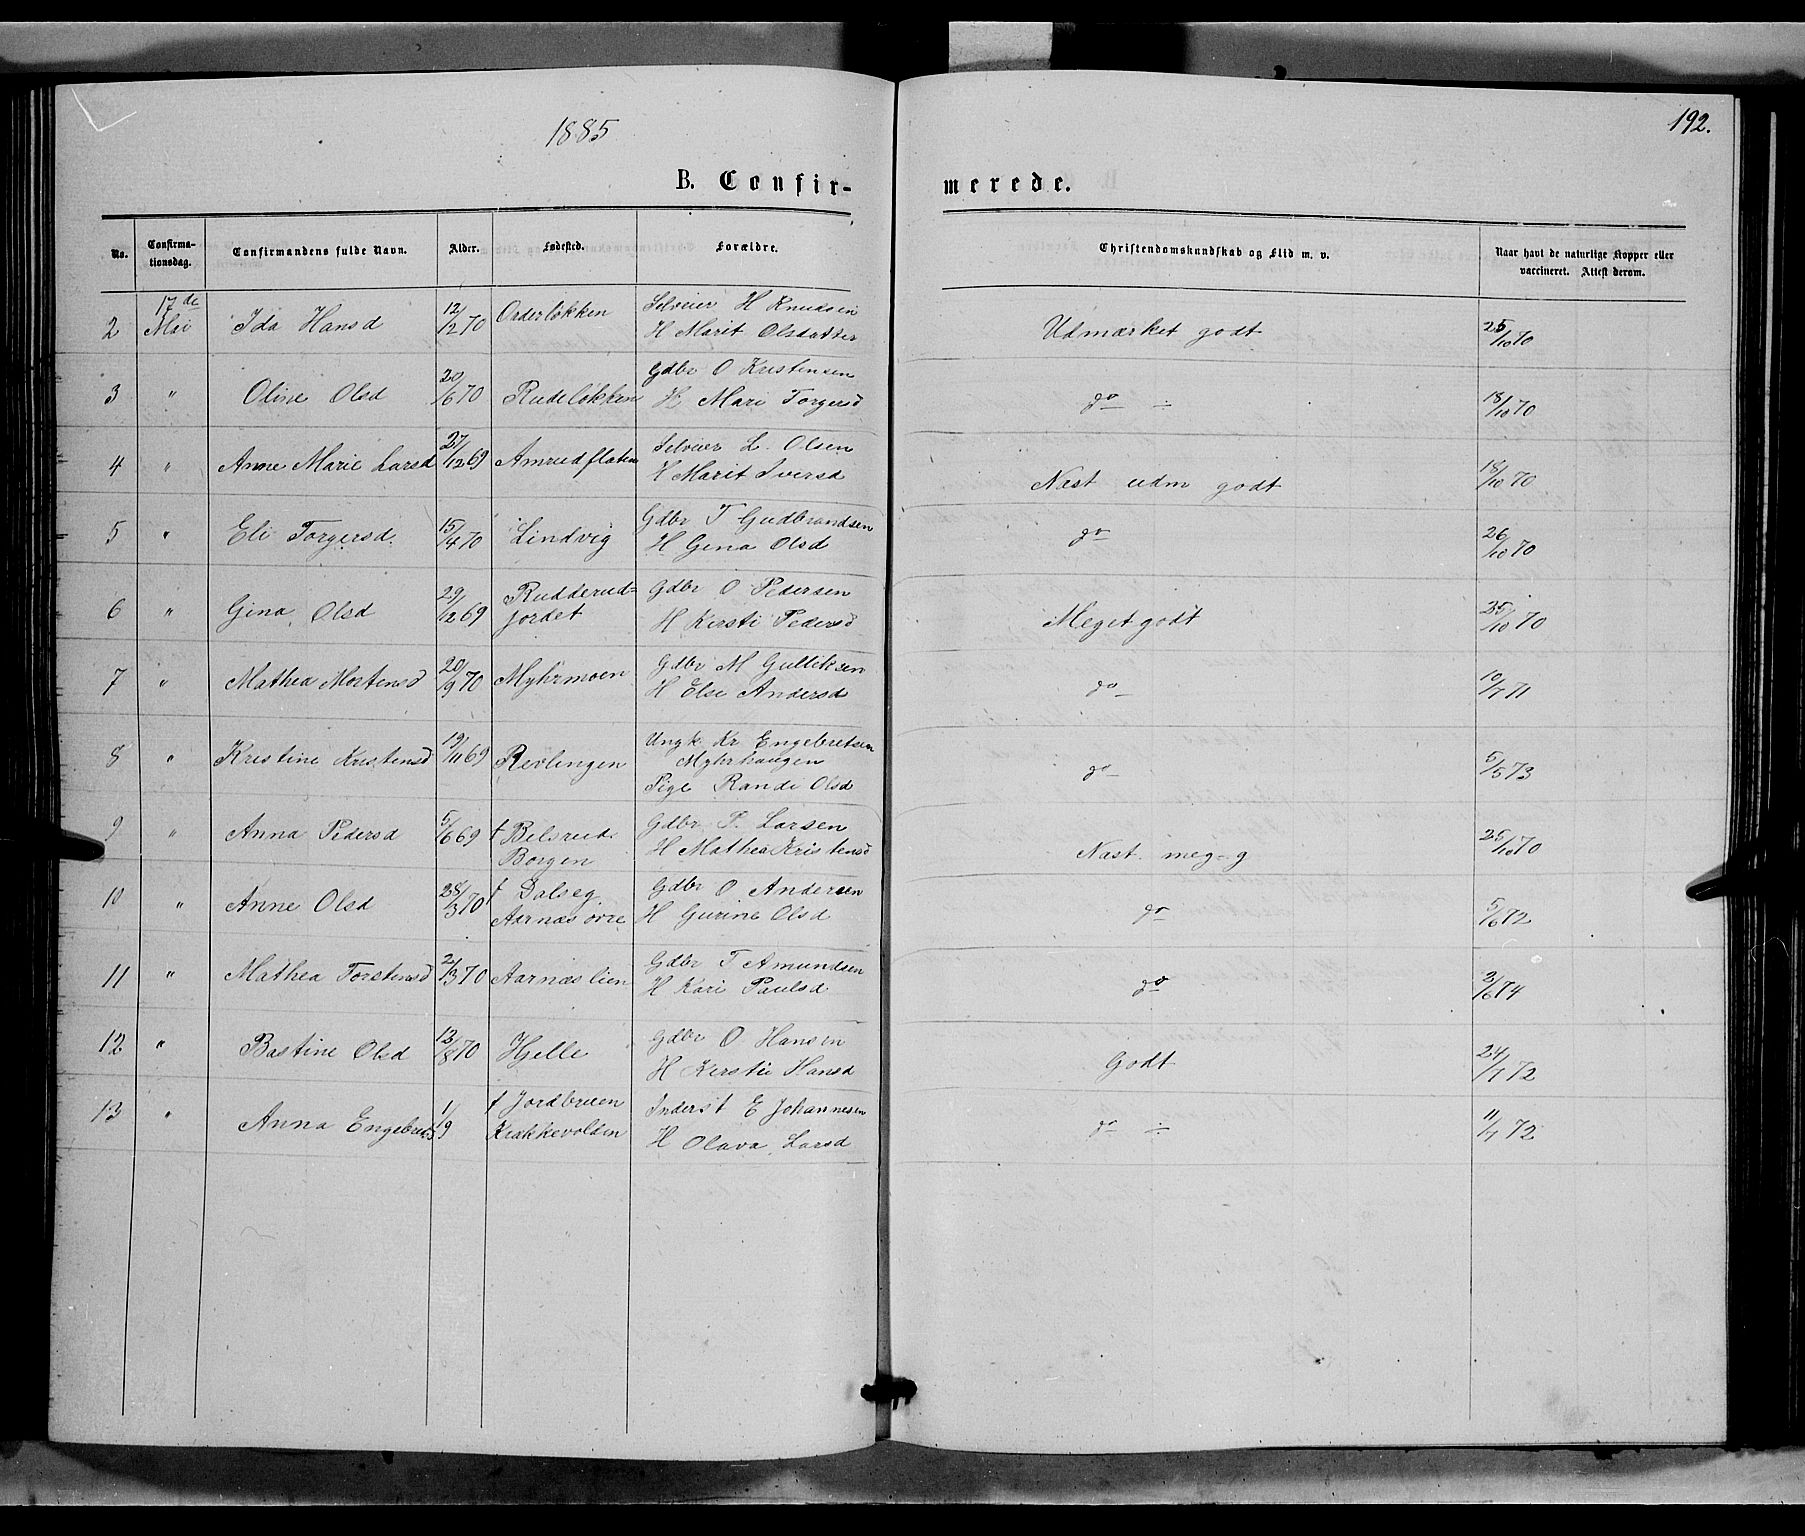 1885
192.
B. Confir-
merede.
No. Confirma-tionsdag. Confirmandens fulde Navn. Alder. Fødested. Forældre. Christendomskundskab og Flid m. v. Naar havt de naturlige Kopper eller vaccineret. Attest derom.
2 17de Mai Ida Hansd 12/2 70 Orderløkken Selveier H Knudsen
H Marit Olsdatter Udmærket godt 25/10 70
3 " Oline Olsd 20/6 70 Rudeløkken Gdbr O Kristensen
H Mari Torgersd do ÷ 18/10 70
4 " Anne Marie Larsd 27/12 69 Amrudflaten Selveier L. Olsen
H Marit Iversd Næst udm godt 18/10 70
5 " Eli Torgersd. 15/4 70 Lindvig Gdbr T Gudbrandsen
H Gina Olsd do 26/10 70
6 " Gina Olsd 29/12 69 Rudderud=
jordet Gdbr O Pedersen
H Kersti Pedersd Meget godt 25/10 70
7 " Mathea Mortensd 20/9 70 Myhrmoen Gdbr M Gulliksen
H Else Andersd do 10/7 71
8 " Kristine Kristensd 19/11 69 Revlingen Ungk Kr Engebretsen
Myhrhaugen
Pige Randi Olsd do 5/5 73
9 " Anna Pedersd 5/6 69 f Belsrud
Borgen Gdbr P. Larsen
H Mathea Kristensd Næst meg g 25/10 70
10 " Anne Olsd 28/3 70 f Dalseg
Aarnæs øvre Gdbr O Andersen
H Gurine Olsd do 5/6 72
11 " Mathea Torstensd 2/3 70 Aarnæslien Gdbr T Amundsen
H Kari Paulsd do 3/6 74
12 " Bastine Olsd 12/8 70 Hjelle Gdbr O Hansen
H Kersti Hansd Godt 24/7 72
13 " Anna Engebrets 1/9 f Jordbruen
Krækkevolden Inderst E Johannesen
H Olava Larsd do ÷ 11/7 72